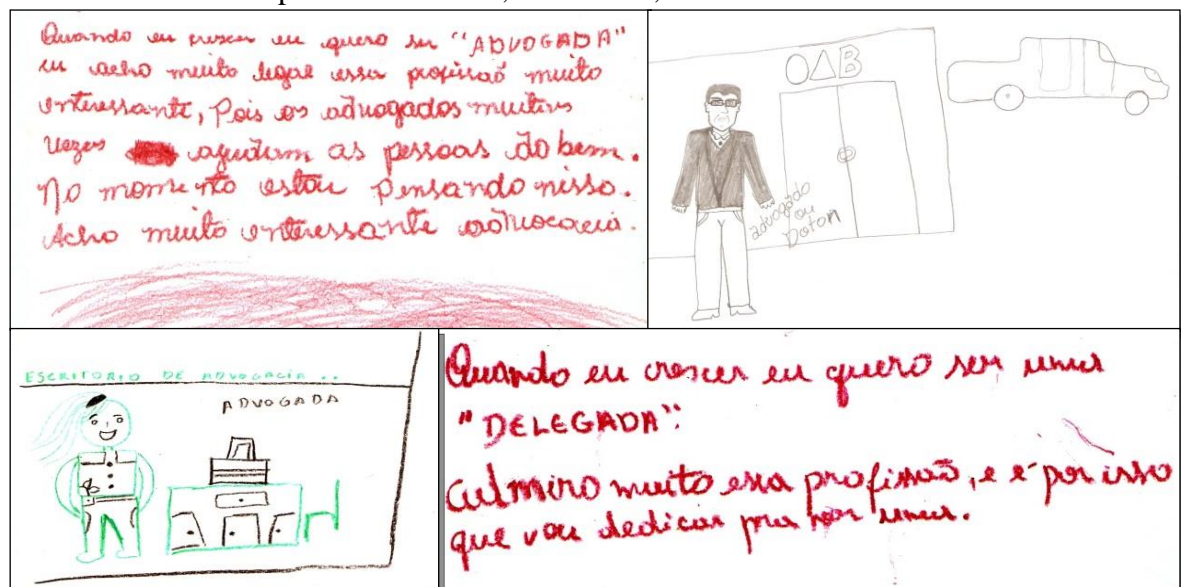 Quando eu crescer eu quero ser "ADVOGADA"
eu acho muito legal essa profissaõ muito
interessante, Pois os advogados muitas
vezes ajudam as pessoas do bem.
No momento estou pensando nisso.
Acho muito interessante advocacia.
OAB
advogado
ou
Dotor
ESCRITORIO DE ADVOGACIA..
ADVOGADA
Quando eu crescer eu quero ser uma
"DELEGADA":
admiro muito essa profissaõ, e é por isso
que vou dedicar pra ser uma.